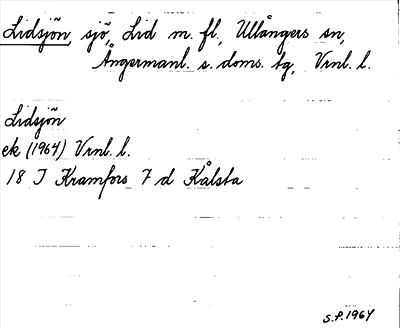 Lidsjön, sjö, Lid m. fl., Ullångers sn,
Ångermanl. s. doms. tg, Vrnl. l.
Lidsjön
ek (1964) Vrnl. l.
18 I Kramfors 7 d Kålsta
S.P. 1964